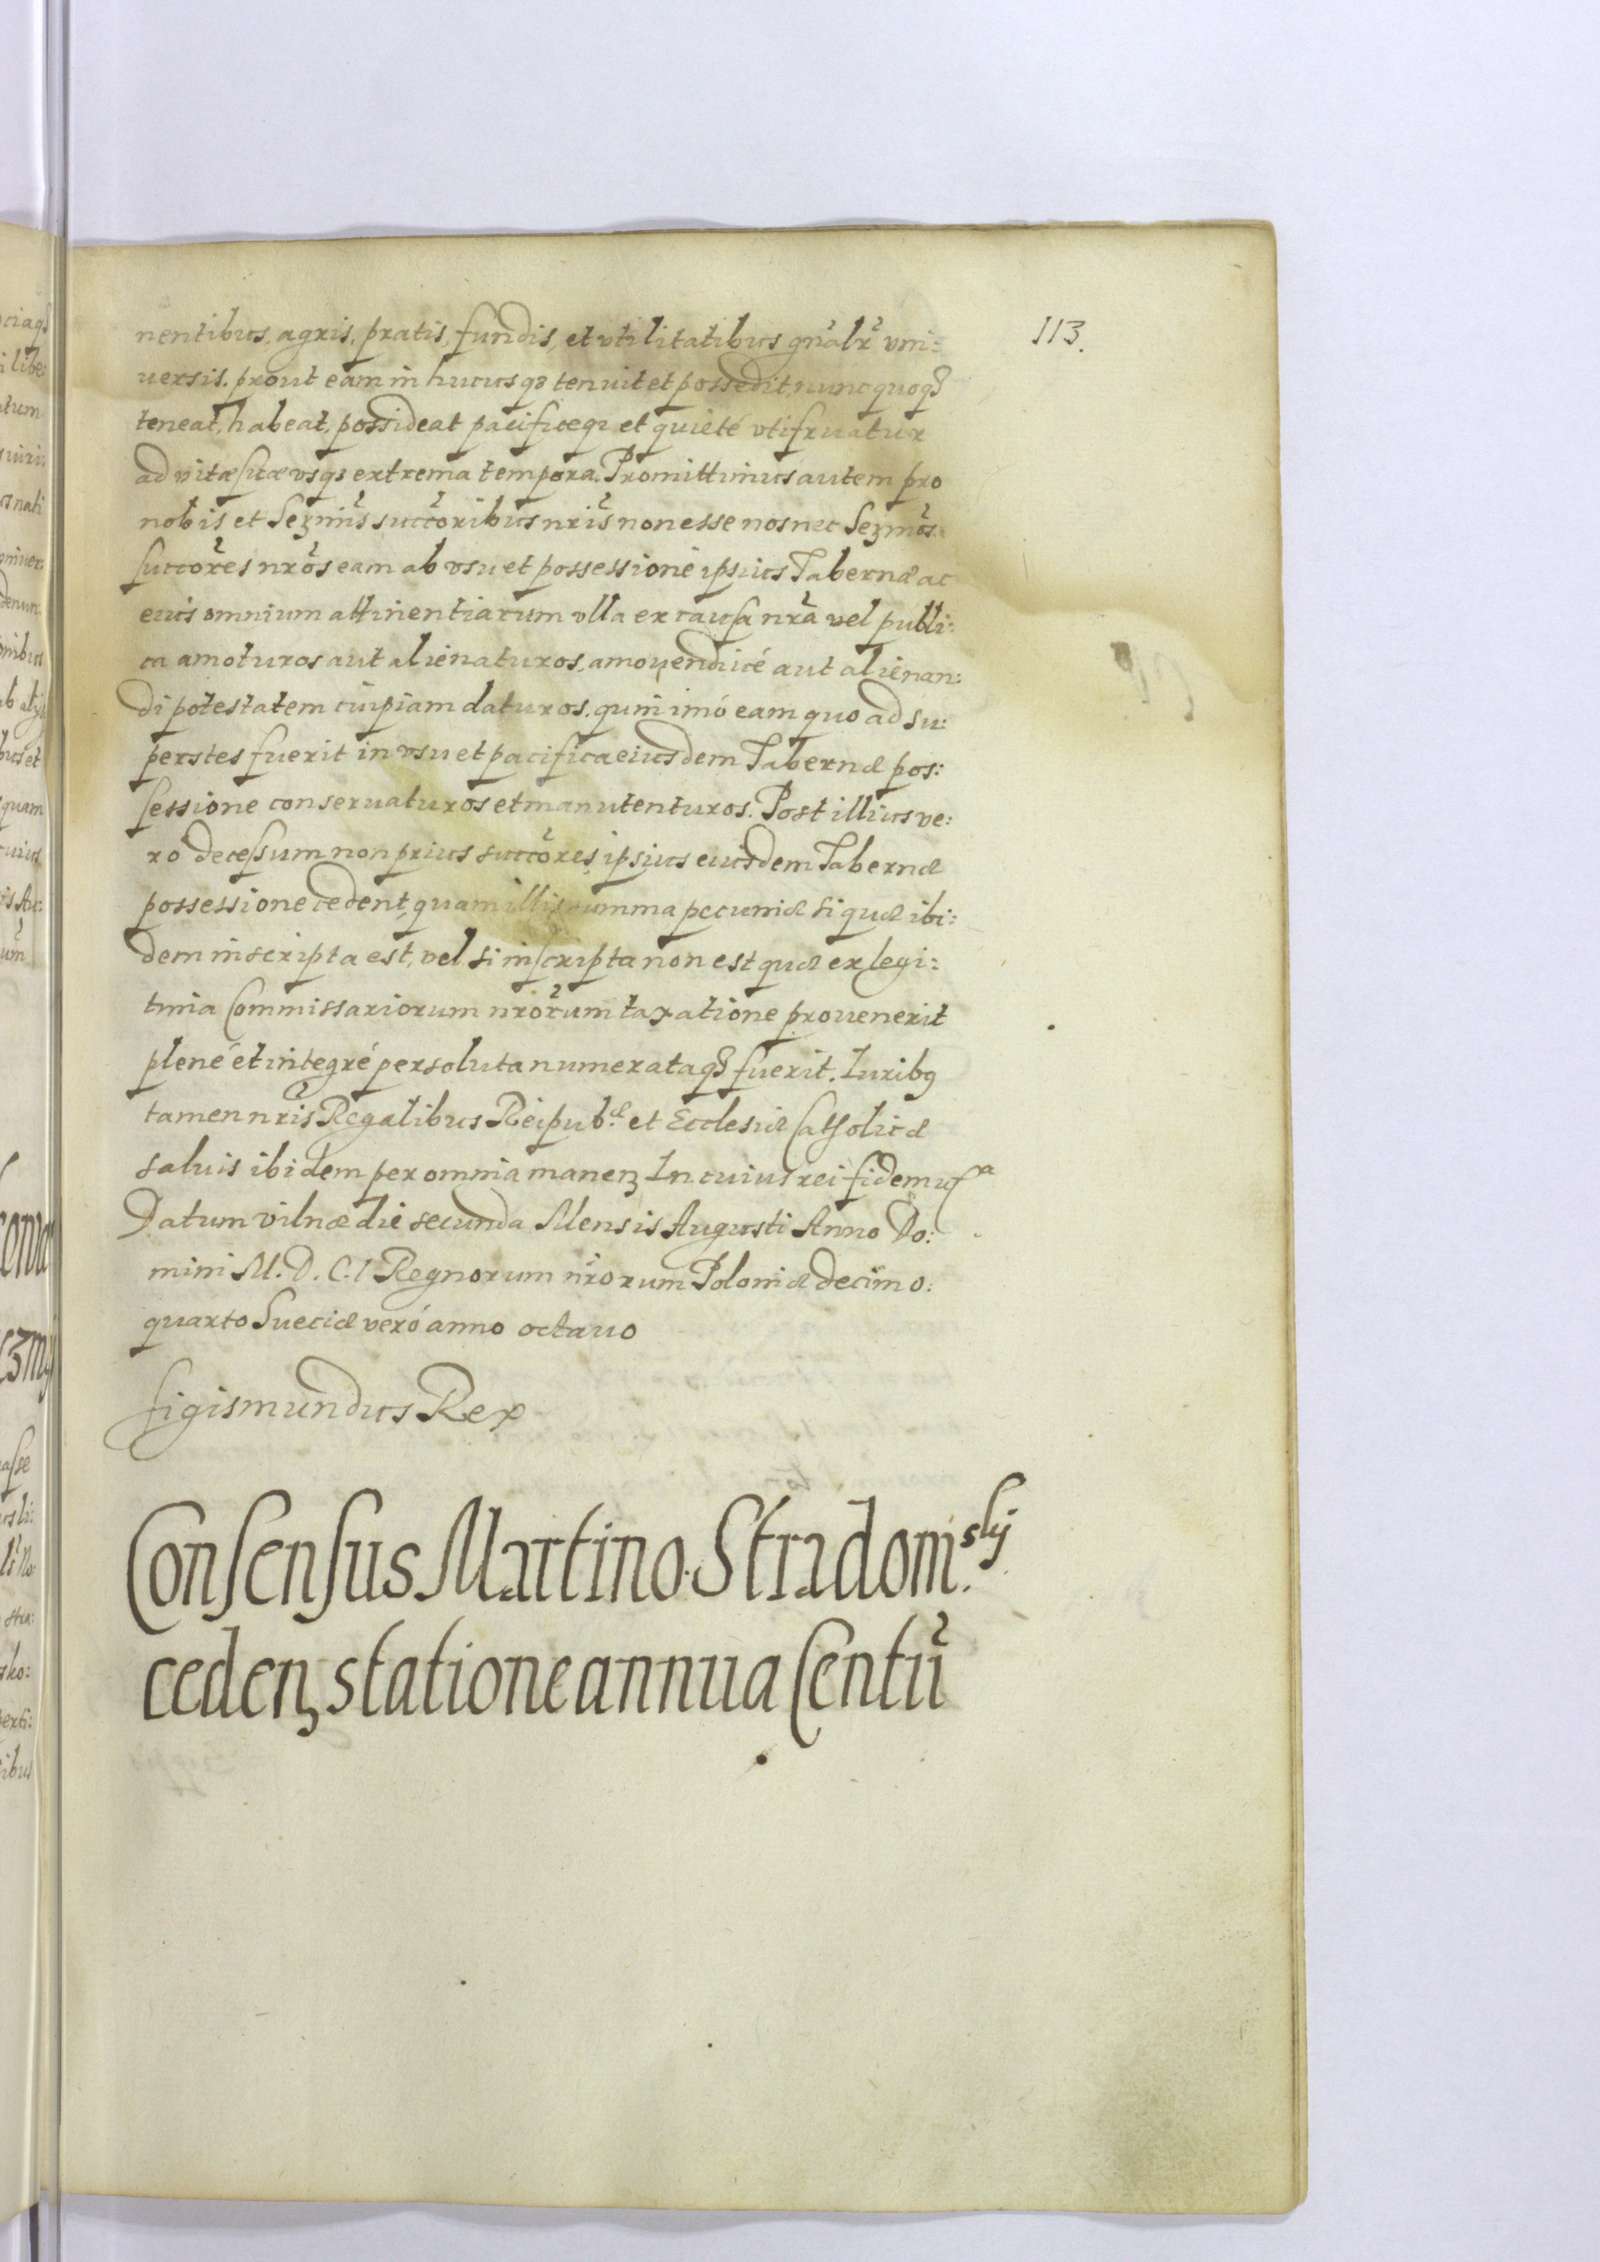 113.
nentibus, agris, pratis, fundis, et vtilitatibus gnalr vni:
uersis. prout eam in hucusq3 tenuit et possedit, nunc quoq3
teneat, habeat, possideat pacificeq3 et quieté vtifruatur
ad vitæ suæ vsq3 extrema tempora. Promittimus autem pro
nobis et Sezmis succoribus nris non esse nos nec Sezmos
succores nros eam ab vsu et possessione ipsius Tabernæ ac
eius omnium attinentiarum vlla ex causa nra vel publi:
ca amoturos aut alienaturos, amouendiué aut alienan:
di potestatem cuipiam daturos, quin imó eam quo ad su:
perstes fuerit in vsu et pacifica eiusdem Tabernæ pos:
sessione conseruaturos et manutenturos. Post illius ve:
ro decessum non prius succores ipsius eiusdem Tabernæ
possessione cedent, quam illis summa pecuniæ si quæ ibi:
dem inscripta est, vel si inscripta non est quæ ex legi:
tima Commissariorum nrorum taxatione prouenerit
plené et integré persoluta numerataq3 fuerit. Iuribg
tamen nris Regalibus Reipub. et Ecclesiæ Catholicæ
saluis ibidem per omnia manen3 In cuius rei fidem
Datum vilnæ die secunda Mensis Augusti Anno Do:
mini M. D. C. I Regnorum nrorum Poloniæ decimo:
quarto Sueciæ veró anno octauo
Sigismundus Rex
Consensus Martino Stradom.skij
ceden3 statione annua Centu